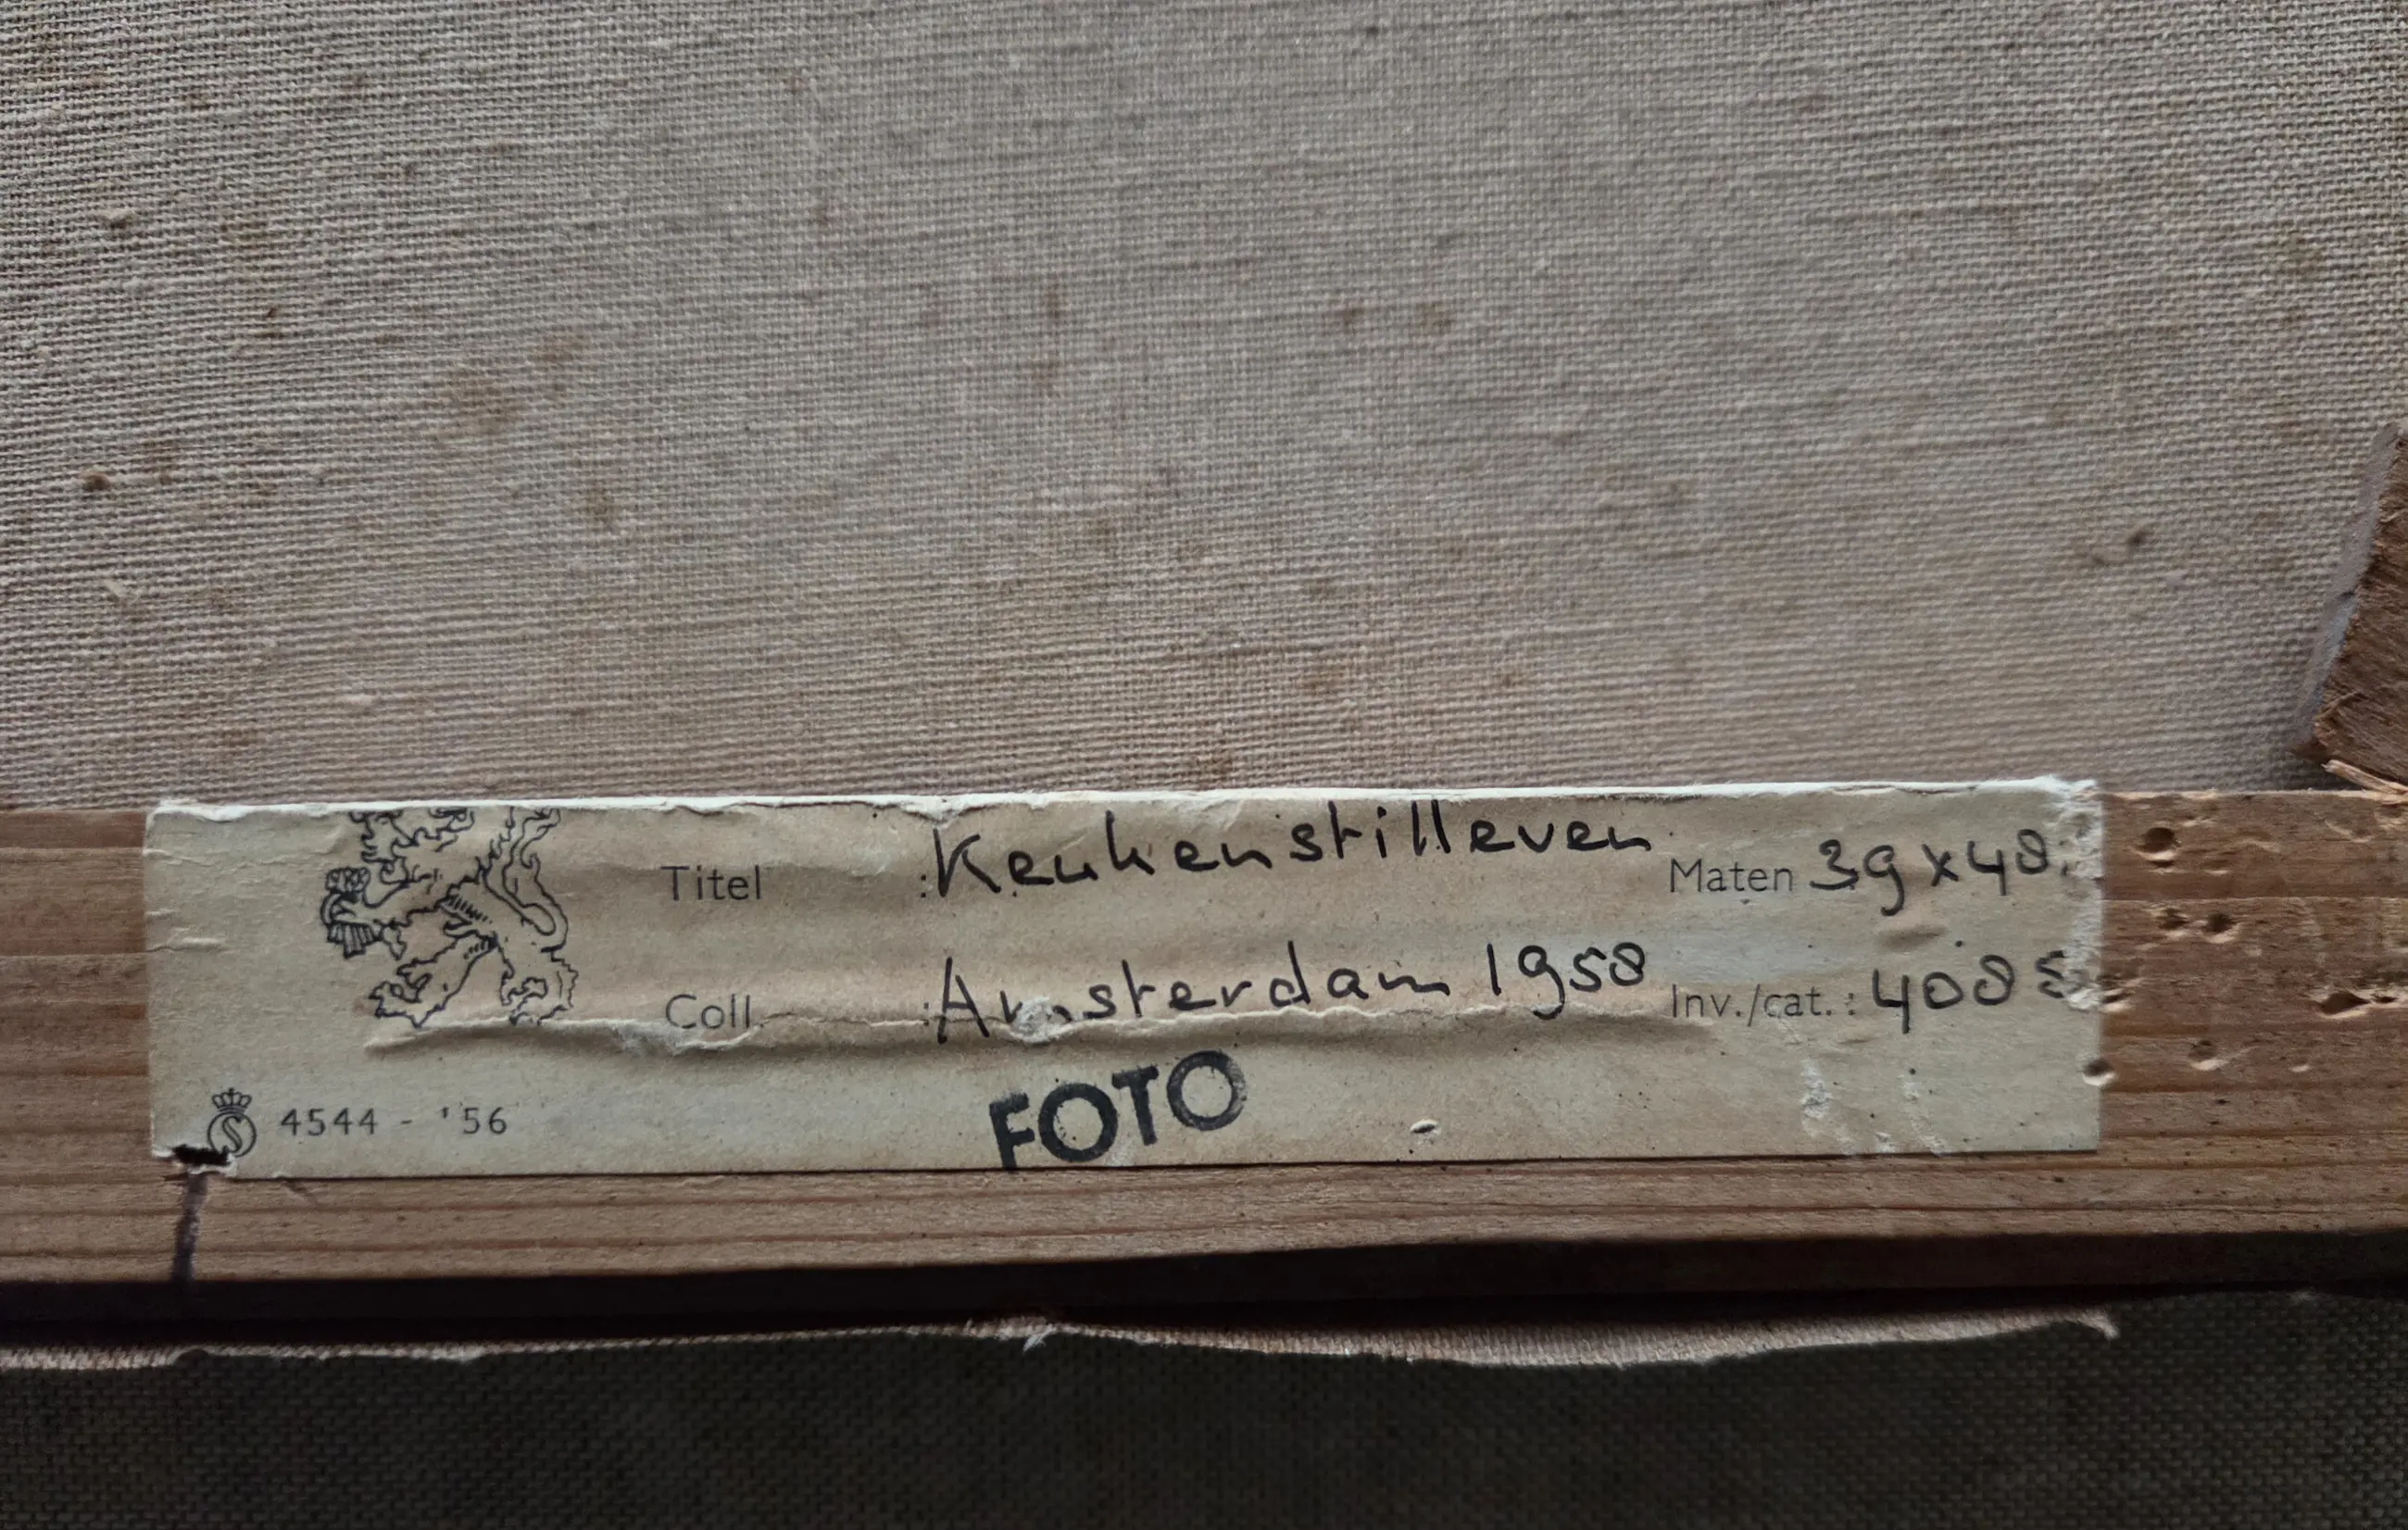 Titel : Keukenstilleven Maten 39 x 48
Coll. : Amsterdam 1958 Inv./cat. : 4088
FOTO
S 4544 - '56